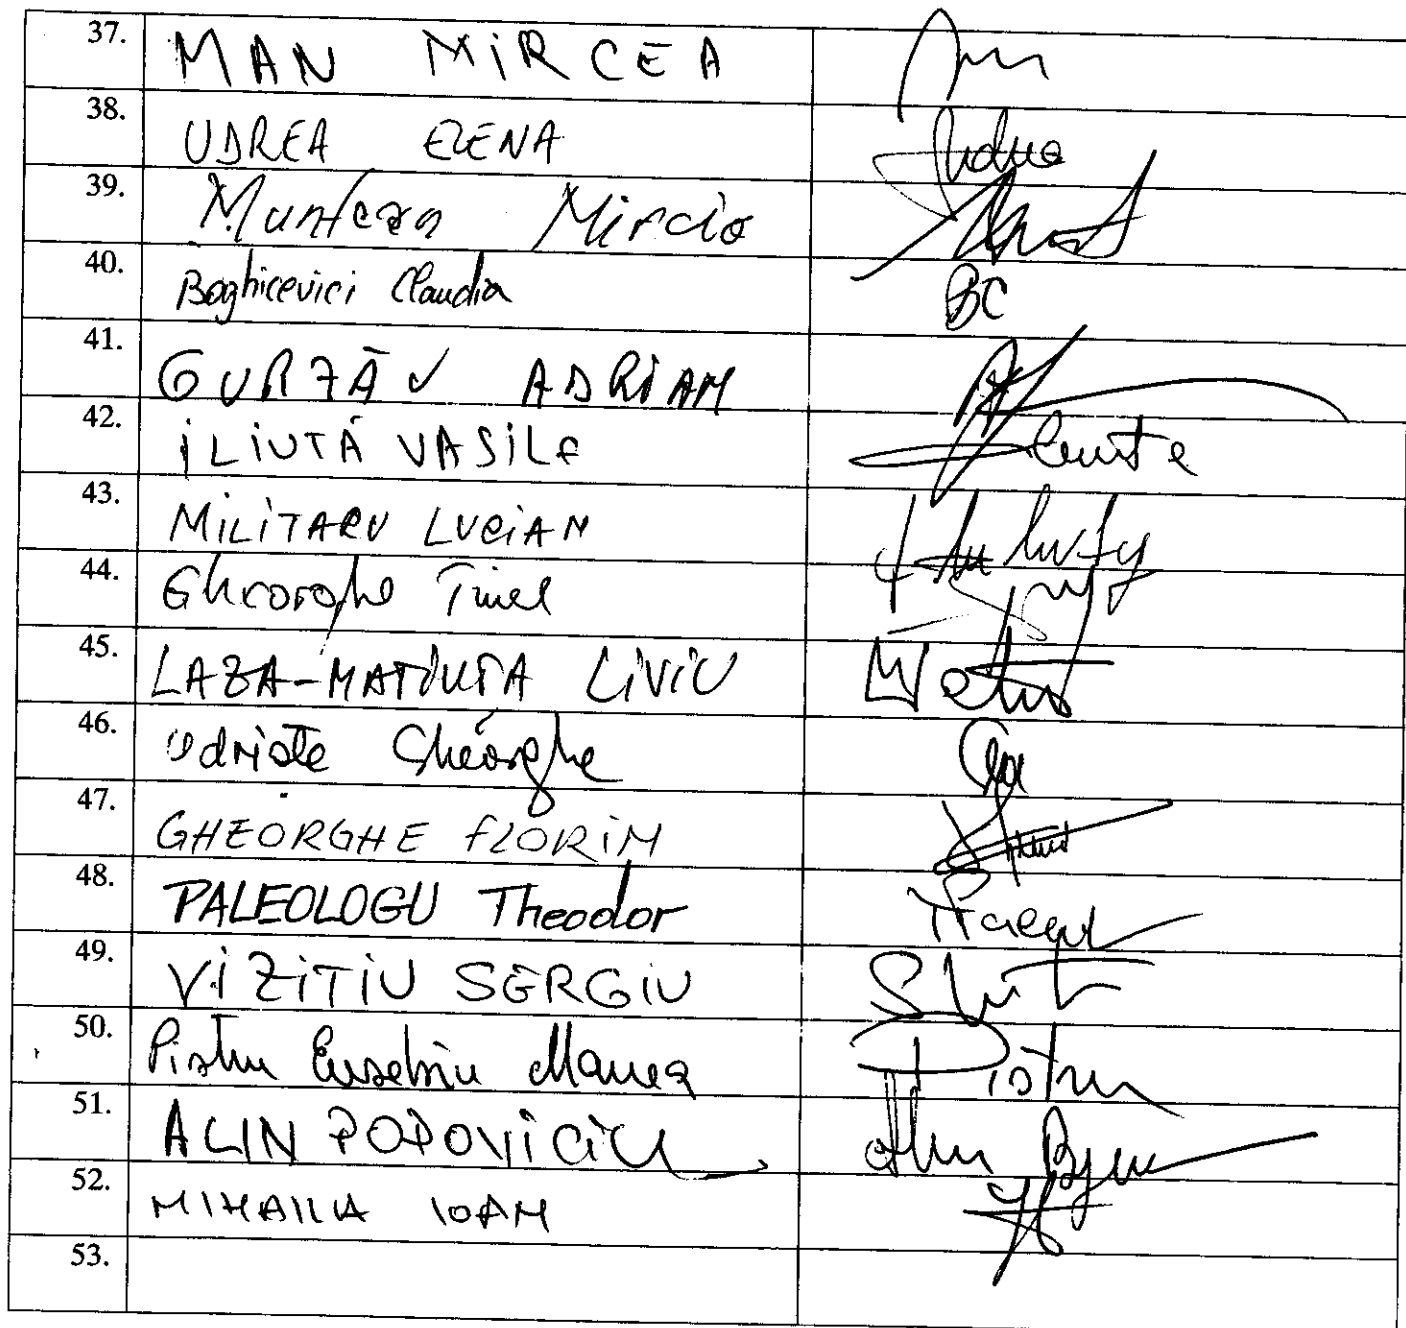 37. MAN MIRCEA
38. UDREA ELENA
39. Muntean Mircia
40. Boghicevici Claudia BC
41. GURZĂU ADRIAN
42. ILIUTĂ VASILE
43. MILITARU LUCIAN
44. Gheorghe Tinel
45. LAZA-MATIUTA LIVIU
46. Udriste Gheorghe
47. GHEORGHE FLORIN
48. PALEOLOGU Theodor
49. VIZITIU SERGIU
50. Pistru Eusebiu Manea Pistru
51. ALIN POPOVICIU
52. MIHAILA IOAN
53.